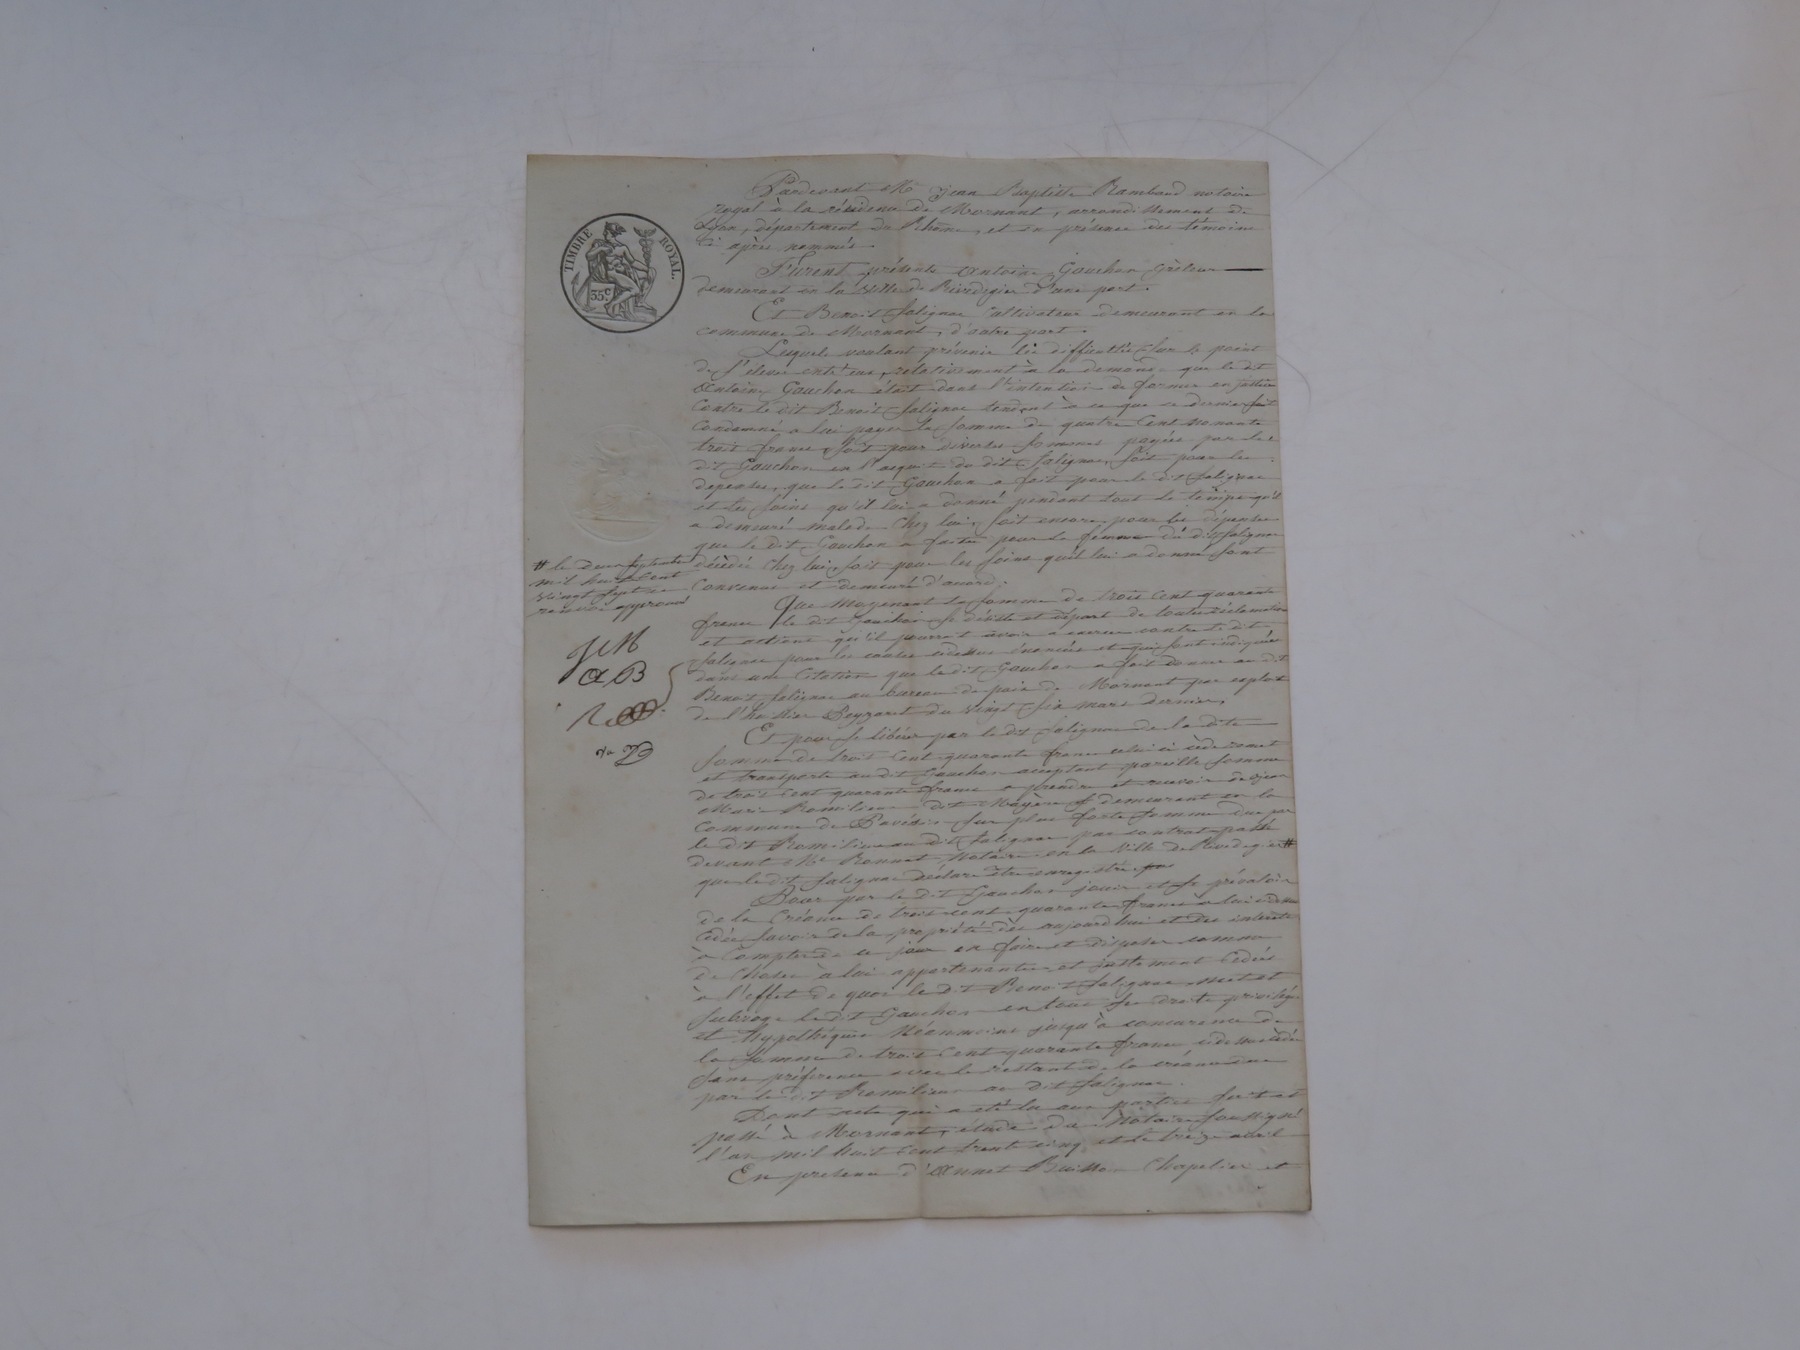 Pardevant Me Jean Baptiste Rambaud notaire
royal à la résidence de Mornant, arrondissement de
Lyon, département du Rhône, et en présence des témoins
ci après nommés
Furent présents Antoine Gouchon
demeurant en la ville de Rivedegier d'une part.
Et Benoit Salignac Cultivateur demeurant en la
commune de Mornant, d'autre part.
Lesquels voulant prévenir les difficultés sur le point
de s'élever entr'eux, relativement à la demande que le dit
Antoine Gouchon était dans l'intention de former en justice
Contre le dit Benoit Salignac tendant à ce que ce dernier fut
Condamné a lui payer la somme de quatre Cent nonante
trois francs, Soit pour diverses sommes payées par le
dit Gouchon en l'acquit du dit Salignac, soit pour les
depenses, que le dit Gouchon a fait pour le dit Salignac
et les soins qu'il lui a donné pendant tout le temps qu'il
a demeuré malade Chez lui, soit encore pour les dépenses
que le dit Gouchon a faites pour la femme du dit Salignac
décèdée Chez lui, soit pour les soins qu'il lui a donné sont
Convenus et demeuré d'accord.
Que moyenant la somme de trois Cent quarante
francs le dit Gouchon se désiste et départ de toutes réclamations
et actions qu'il pourrait avoir a exercer contre le dit
Salignac pour les causes cidessus énoncées et qui sont indiquées
dans une Citation que le dit Gouchon a fait donner au dit
Benoit Salignac au bureau de paix de Mornant par exploit
de l'huissier Peyzaret du vingt six mars dernier,
Et pour se libérer par le dit Salignac de la dite
Somme de trois Cent quarante francs celui ci cède remet
et transporte au dit Gouchon acceptant pareille somme
de trois Cent quarante francs a prendre et recevoir de Jean
Marie Romilieux dit demeurant en la
Commune de sur plus forte somme due par
le dit Romilieux au dit Salignac par contrat passé
devant Me Bonnet Notaire en la ville de Rivedegier #
que le dit Salignac déclare être enregistré
Pour par le dit Gouchon jouir et se prévaloir
de la Créance de trois cent quarante francs a lui cidessus
Cédée savoir de la propriété dès aujourd'hui et des intérêts
à Compter de ce jour en faire et disposer comme
de Choses à lui appartenantes et justement Cédées
à l'effet de quoi le dit Benoit Salignac met et
Subroge le dit Gouchon en tous ses droits privilèges
et Hypothèques Néanmoins jusqu'à concurence de
la somme de trois Cent quarante francs cidessus cédée
sans préférence avec le restant de la créance due
par le dit Romilieux au dit Salignac.
Dont acte qui a été lu aux parties fait et
passé à Mornant, étude du Notaire soussigné
l'an mil huit Cent trente cinq et le treize avril
En présence d'Annet Buisson Chapelier et
TIMBRE ROYAL.
35c
# le deux septembre
mil huit Cent
vingt sept ce
renvoi approuvé
JMB
AB